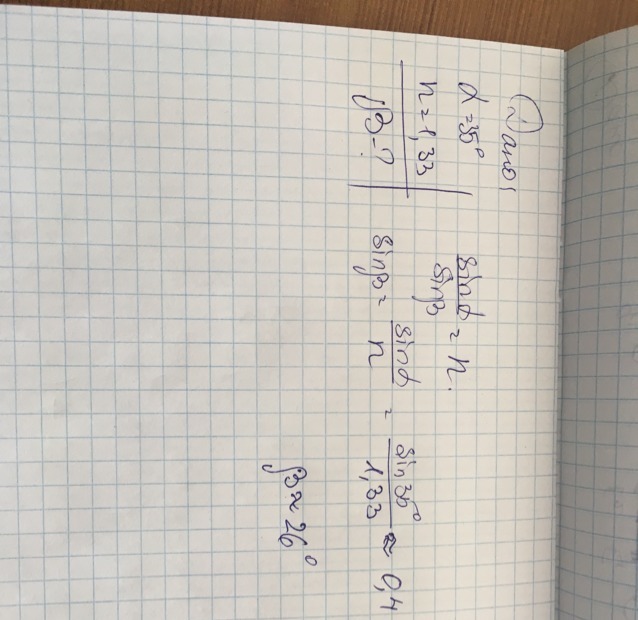 Дано:
α = 35°
n = 1,33
β - ?
sin α / sin β = n.
sin β = sin α / n = sin 35° / 1,33 ≈ 0,4
β ≈ 26°